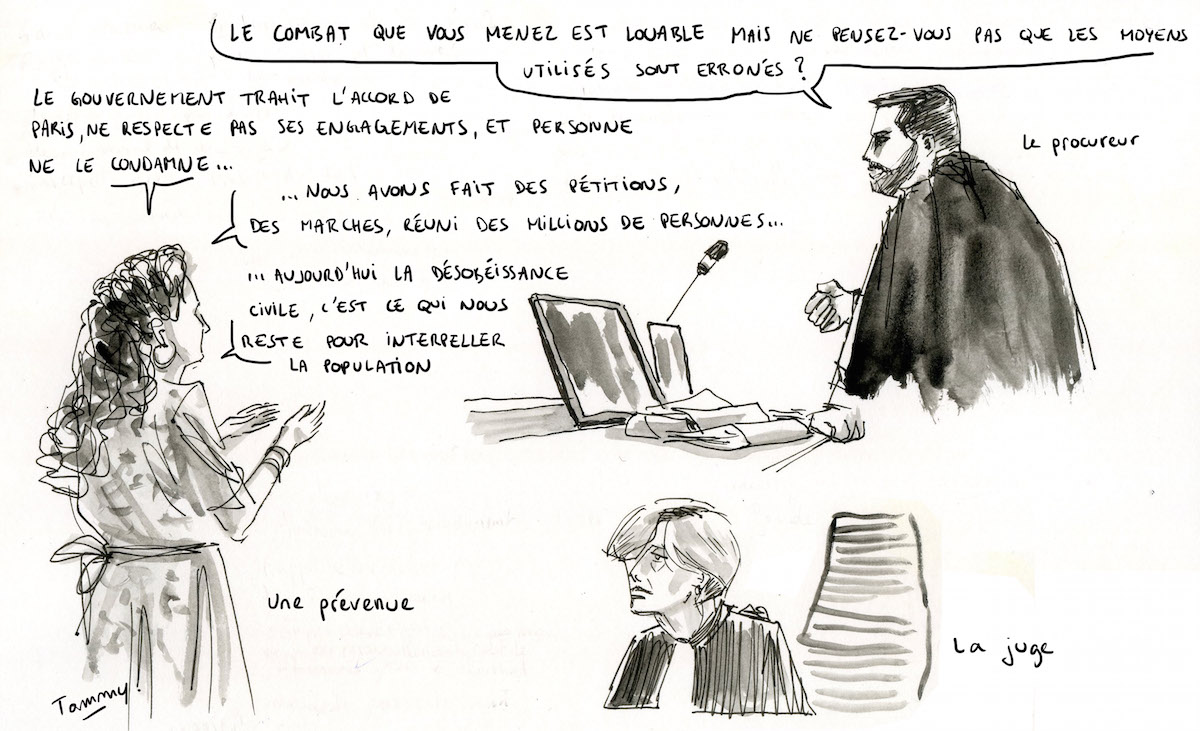 LE COMBAT QUE VOUS MENEZ EST LOUABLE MAIS NE PENSEZ-VOUS PAS QUE LES MOYENS
UTILISÉS SONT ERRONÉS ?
le procureur
LE GOUVERNEMENT TRAHIT L'ACCORD DE
PARIS, NE RESPECTE PAS SES ENGAGEMENTS, ET PERSONNE
NE LE CONDAMNE...
... NOUS AVONS FAIT DES PÉTITIONS,
DES MARCHES, RÉUNI DES MILLIONS DE PERSONNES...
... AUJOURD'HUI LA DÉSOBÉISSANCE
CIVILE, C'EST CE QUI NOUS
RESTE POUR INTERPELLER
LA POPULATION
une prévenue
La juge
Tammy